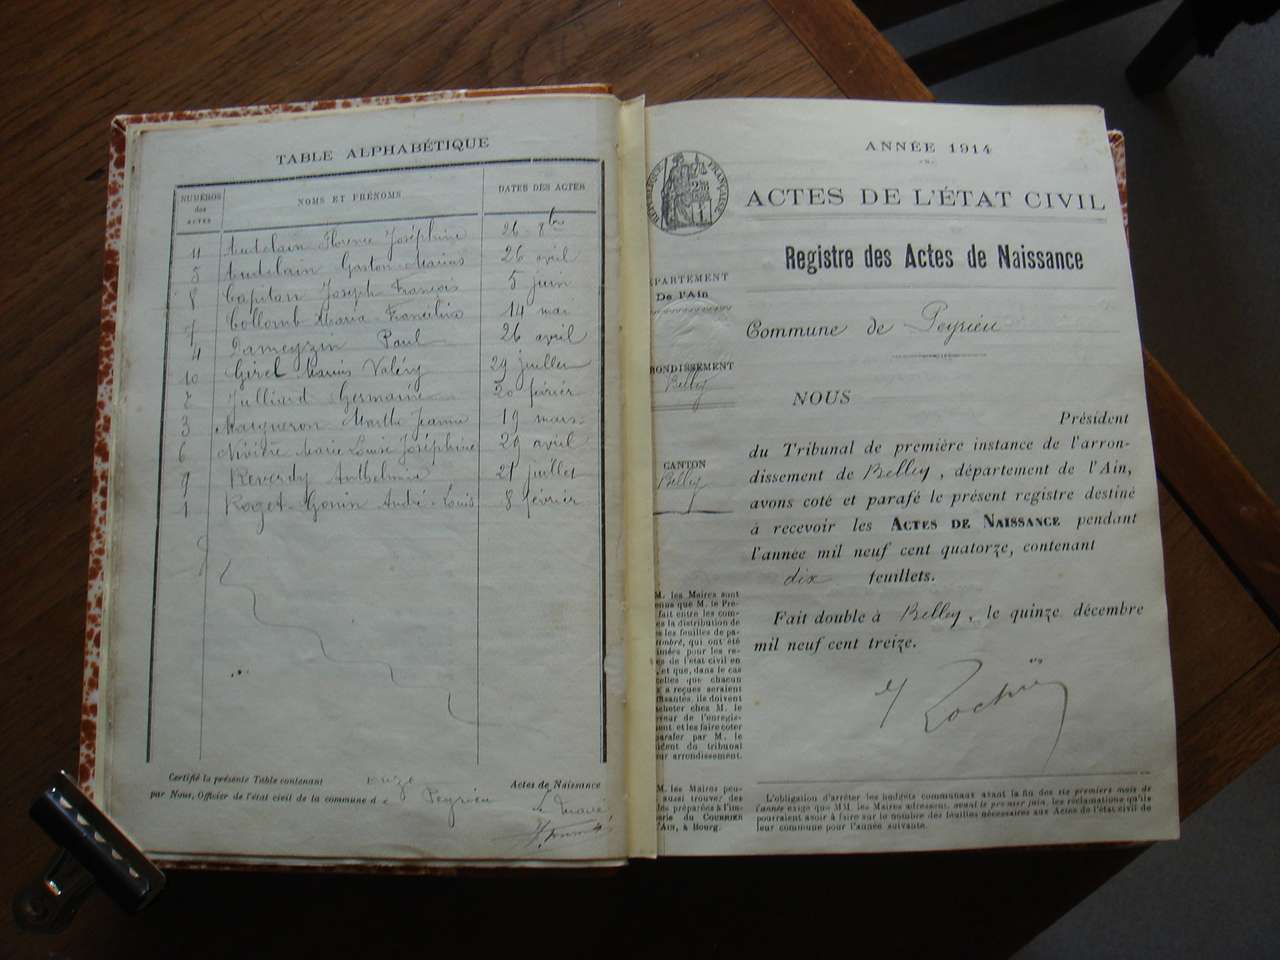 TABLE ALPHABÉTIQUE
NUMÉROS des ACTES NOMS ET PRÉNOMS DATES DES ACTES
11 Audelain Florence Joséphine 26 8bre
5 Audelain Gaston Marius 26 avril
8 Capitan Joseph François 5 juin
7 Collomb Maria Franceline 14 mai
4 Dameyzin Paul 26 avril
10 Girel Marius Valéry 29 juillet
2 Julliard Germaine 20 février
3 Marie Jeanne 19 mars
6 Rivière Marie Louise Joséphine 29 avril
9 Reverdy Anthelmine 21 juillet
1 Roget-Gonin André-Louis 8 février
Certifié la présente Table contenant onze Actes de Naissance
par Nous, Officier de l'état civil de la commune de Peyrieu
ANNÉE 1914
RÉPUBLIQUE FRANÇAISE
ACTES DE L'ÉTAT CIVIL
Registre des Actes de Naissance
PARTEMENT
De l'Ain
Commune de Peyrieu
RONDISSEMENT
Belley
CANTON
Belley
NOUS
Président
du Tribunal de première instance de l'arron-
dissement de Belley, département de l'Ain,
avons coté et parafé le présent registre destiné
à recevoir les ACTES DE NAISSANCE pendant
l'année mil neuf cent quatorze, contenant
dix feuillets.
Fait double à Belley, le quinze décembre
mil neuf cent treize.
M. les Maires sont
enus que M. le Pré-
fait entre les com-
es la distribution de
es les feuilles de pa-
timbré, qui ont été
imées pour les re-
es de l'état civil en
, et que, dans le cas
celles que chacun
x a reçues seraient
fisantes, ils doivent
cheter chez M. le
veur de l'enregis-
ent, et les faire coter
parafer par M. le
ident du tribunal
ur arrondissement.
M. les Maires peu-
aussi trouver des
les préparées à l'im-
erie du COURRIER
'AIN, à Bourg.
L'obligation d'arrêter les budgets communaux avant la fin des six premiers mois de
l'année exige que MM. les Maires adressent, avant le premier juin, les réclamations qu'ils
pourraient avoir à faire sur le nombre des feuilles nécessaires aux Actes de l'état civil de
leur commune pour l'année suivante.